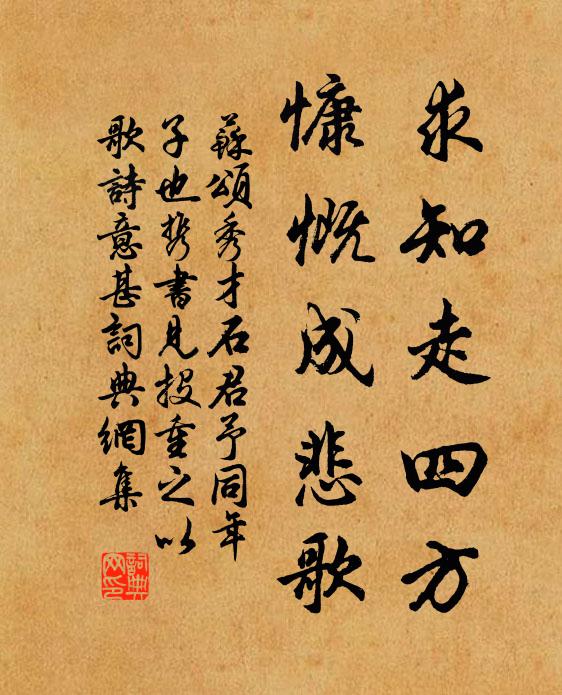 求知走四方
慷慨成悲歌
蘇頌秀才石君予同年
子也携書見投重之以
歌詩意甚詞典網集
詞典網印